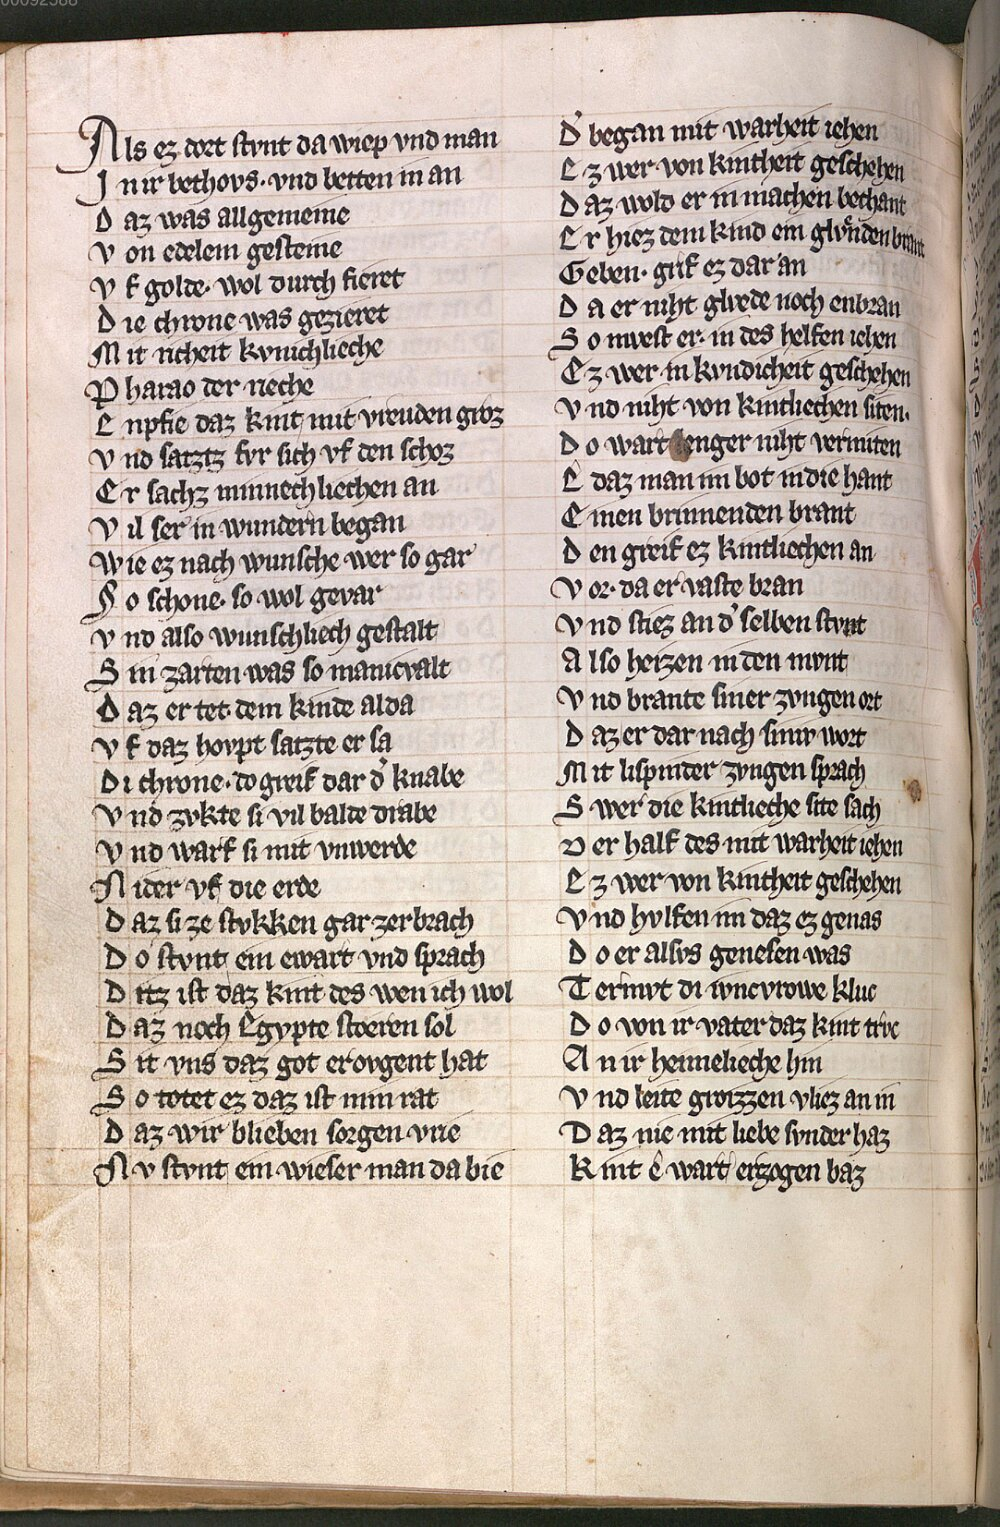 Als ez dort stvnt da wiep vnd man
In ir bethovs· vnd betten in an
Daz was allgemeine
Von edelem gesteine
Vf golde· wol durch fieret
Die chrone was gezieret
Mit richeit kvnichlieche
Pharao der rieche
Enpfie daz kint mit vreuden groz
Vnd satztz fvr sich vf den schoz
Er sachz minnechliechen an
Vil ser in wundern began
Wie ez nach wunsche wer so gar
So schone· so wol gevar
Vnd also wunschliech gestalt
Sin zarten was so manicvalt
Daz er tet dem kinde alda
Vf daz hovpt satzte er sa
Di chrone· do greif dar d' knabe
Vnd zvkte si vil balde drabe
Vnd warf si mit vnwerde
Nider vf die erde
Daz si ze stvkken gar zerbrach
Do stvnt ein ewart vnd sprach
Ditz ist daz kint des wen ich wol
Daz noch Egypte stoeren sol
Sit vns daz got erovgent hat
So totet ez daz ist min rat
Daz wir blieben sorgen vrie
Nv stvnt ein wieser man da bie
D' began mit warheit iehen
Ez wer von kintheit geschehen
Daz wold er in machen bechant
Er hiez dem kind ein glvͤnden brant
Geben· grif ez dar an
Da er niht glvede noch enbran
So mvest er in des helfen iehen
Ez wer in kvndicheit geschehen
Vnd niht von kintliechen siten·
Do wart lenger niht vermiten
E daz man im bot in die hant
Einen brinnenden brant
Den greif ez kintliechen an
Vor· da er vaste bran
Vnd stiez an d' selben stvnt
Also heizen in den mvnt
Vnd brante siner zvngen ort
Daz er dar nach siniv wort
Mit lispinder zvngen sprach
Swer die kintlieche site sach
Der half des mit warheit iehen
Ez wer von kintheit geschehen
Vnd hvlfen im daz ez genas
Do er alsvs genesen was
Termvt di ivncvrowe kluc
Do von ir vater daz kint trvc
An ir heimelieche hin
Vnd leite groizzen vliez an in
Daz nie mit liebe svnder haz
Kint e wart erzogen baz